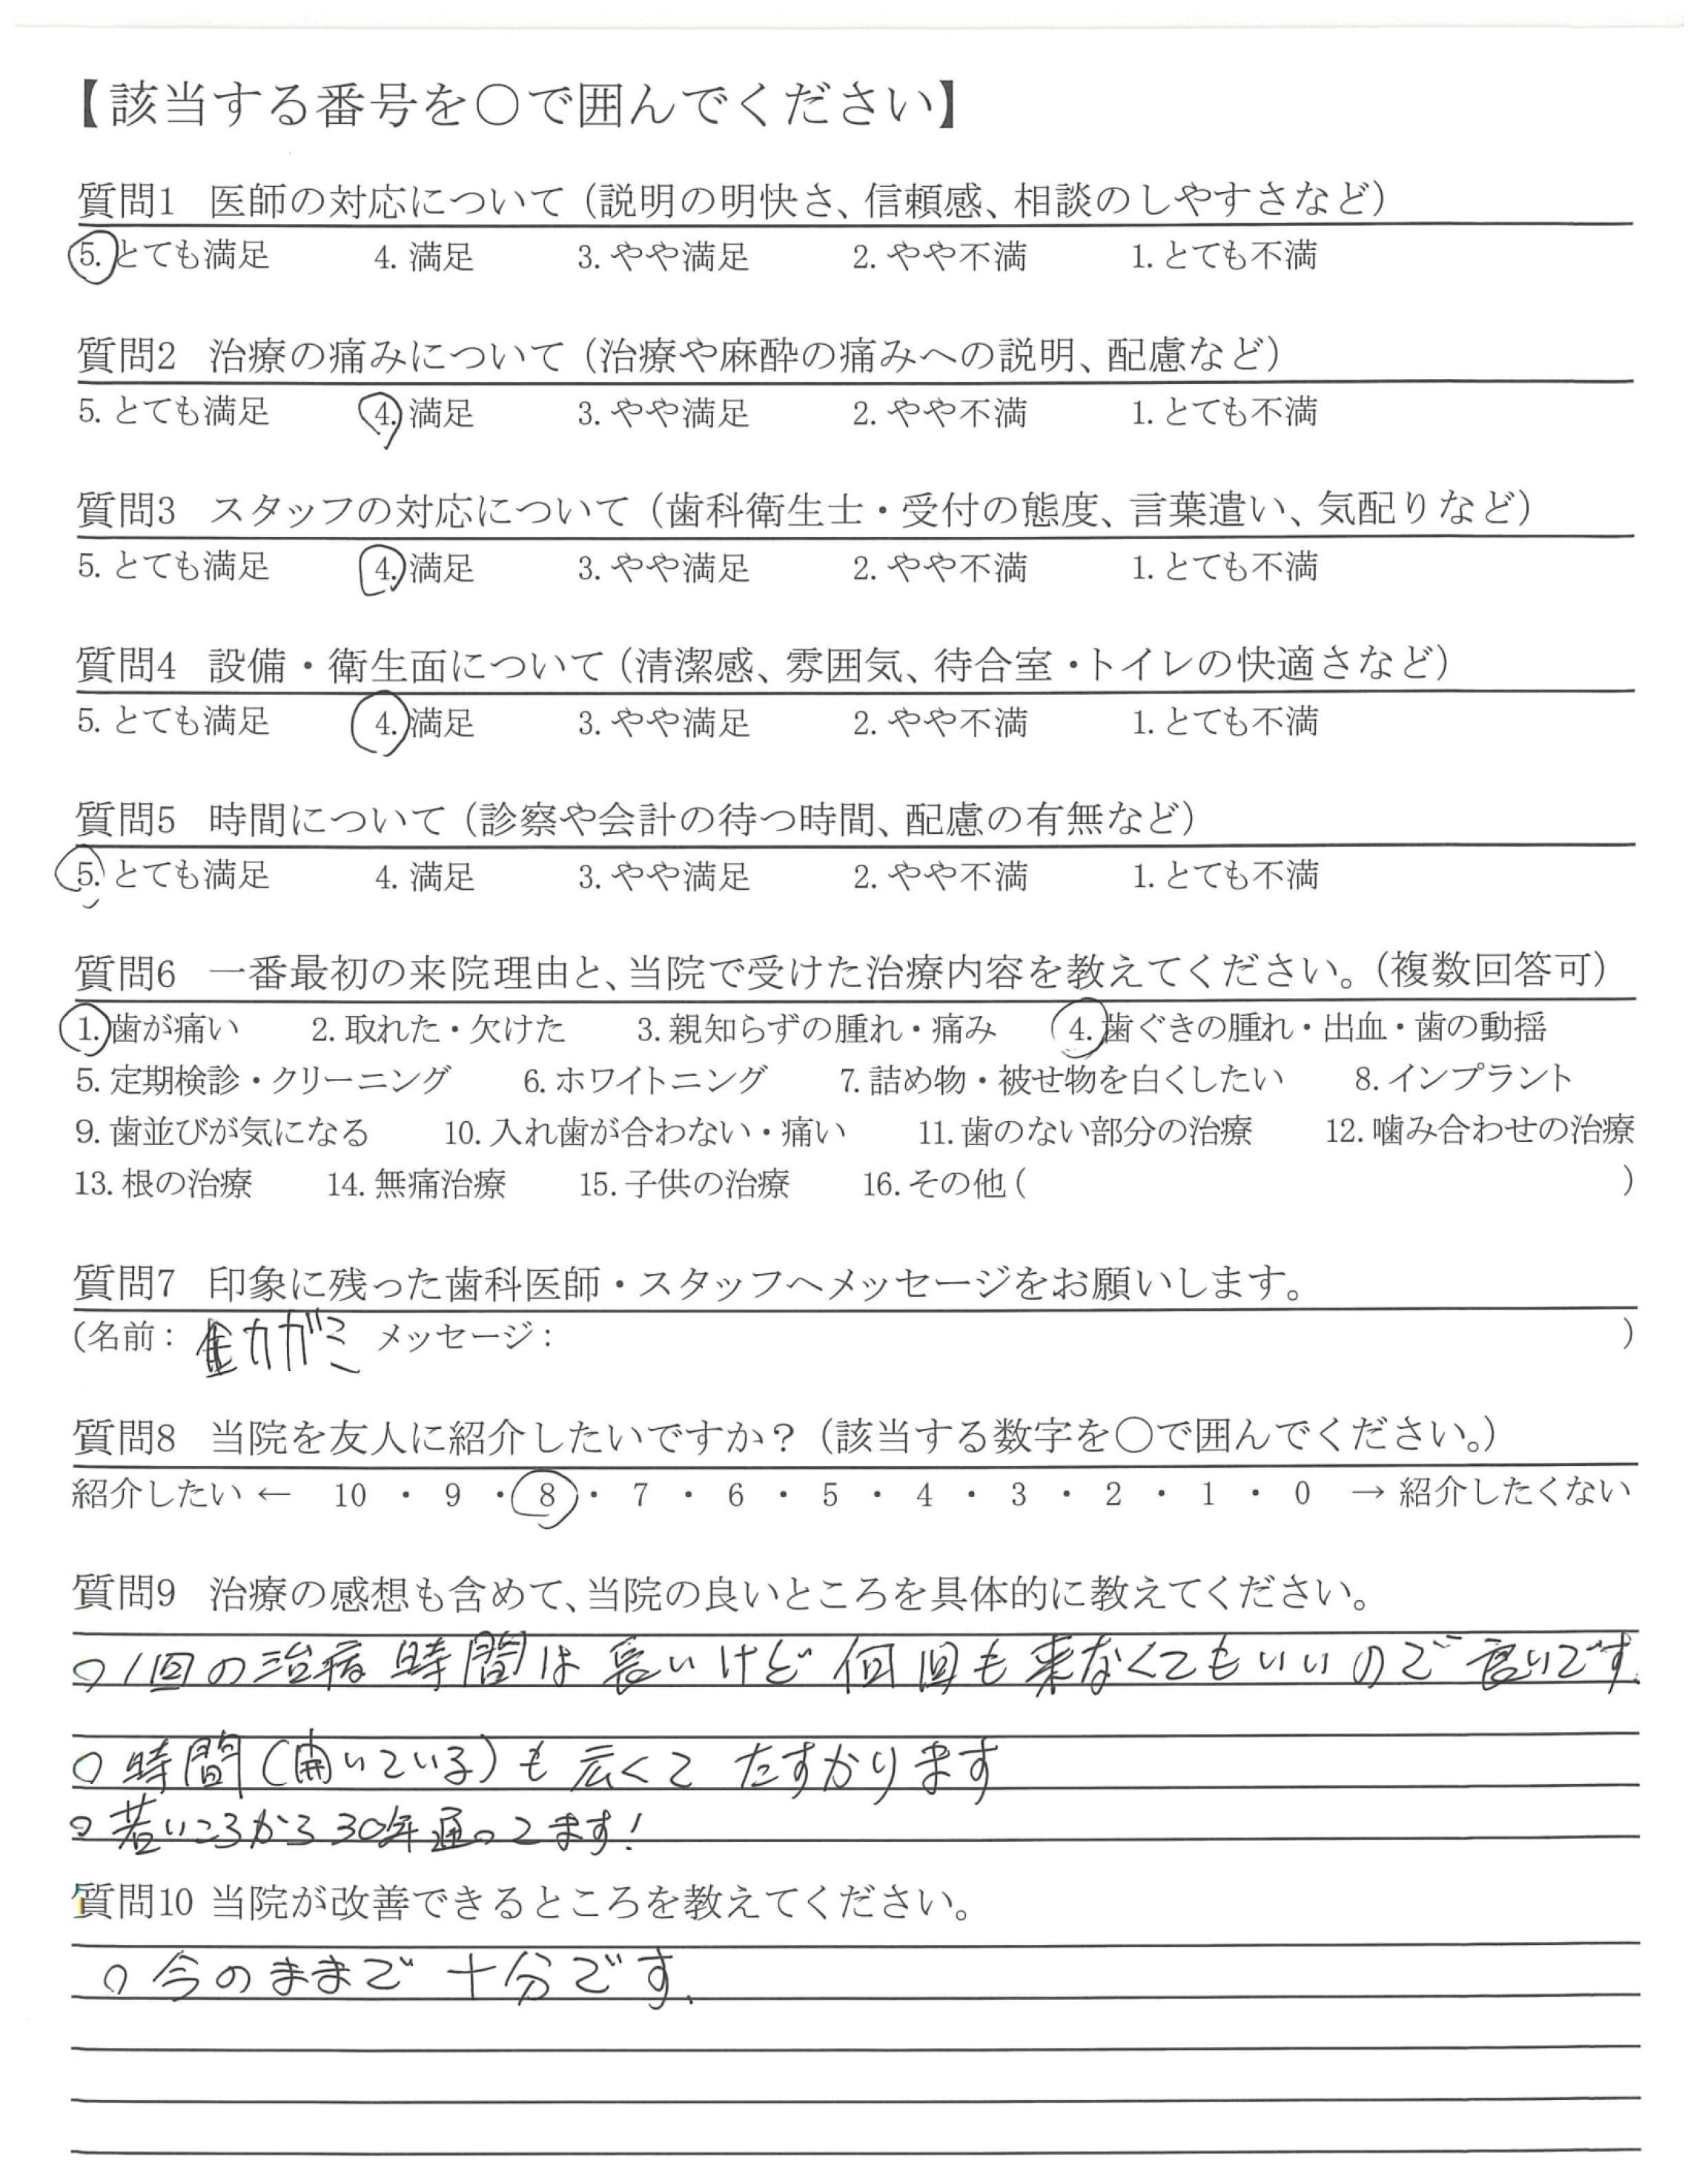 【該当する番号を○で囲んでください】
質問1 医師の対応について（説明の明快さ、信頼感、相談のしやすさなど）
5. とても満足 4. 満足 3. やや満足 2. やや不満 1. とても不満
質問2 治療の痛みについて（治療や麻酔の痛みへの説明、配慮など）
5. とても満足 4. 満足 3. やや満足 2. やや不満 1. とても不満
質問3 スタッフの対応について（歯科衛生士・受付の態度、言葉遣い、気配りなど）
5. とても満足 4. 満足 3. やや満足 2. やや不満 1. とても不満
質問4 設備・衛生面について（清潔感、雰囲気、待合室・トイレの快適さなど）
5. とても満足 4. 満足 3. やや満足 2. やや不満 1. とても不満
質問5 時間について（診察や会計の待つ時間、配慮の有無など）
5. とても満足 4. 満足 3. やや満足 2. やや不満 1. とても不満
質問6 一番最初の来院理由と、当院で受けた治療内容を教えてください。（複数回答可）
1. 歯が痛い 2. 取れた・欠けた 3. 親知らずの腫れ・痛み 4. 歯ぐきの腫れ・出血・歯の動揺
5. 定期検診・クリーニング 6. ホワイトニング 7. 詰め物・被せ物を白くしたい 8. インプラント
9. 歯並びが気になる 10. 入れ歯が合わない・痛い 11. 歯のない部分の治療 12. 噛み合わせの治療
13. 根の治療 14. 無痛治療 15. 子供の治療 16. その他（ ）
質問7 印象に残った歯科医師・スタッフへメッセージをお願いします。
（名前： メッセージ： ）
質問8 当院を友人に紹介したいですか？（該当する数字を○で囲んでください。）
紹介したい ← 10 ・ 9 ・ 8 ・ 7 ・ 6 ・ 5 ・ 4 ・ 3 ・ 2 ・ 1 ・ 0 → 紹介したくない
質問9 治療の感想も含めて、当院の良いところを具体的に教えてください。
○1回の治療時間は長いけど何回も来なくてもいいので良いです.
○時間（開いている）も広くてたすかります
○若いころから30年通ってます!
質問10 当院が改善できるところを教えてください。
○今のままで十分です.